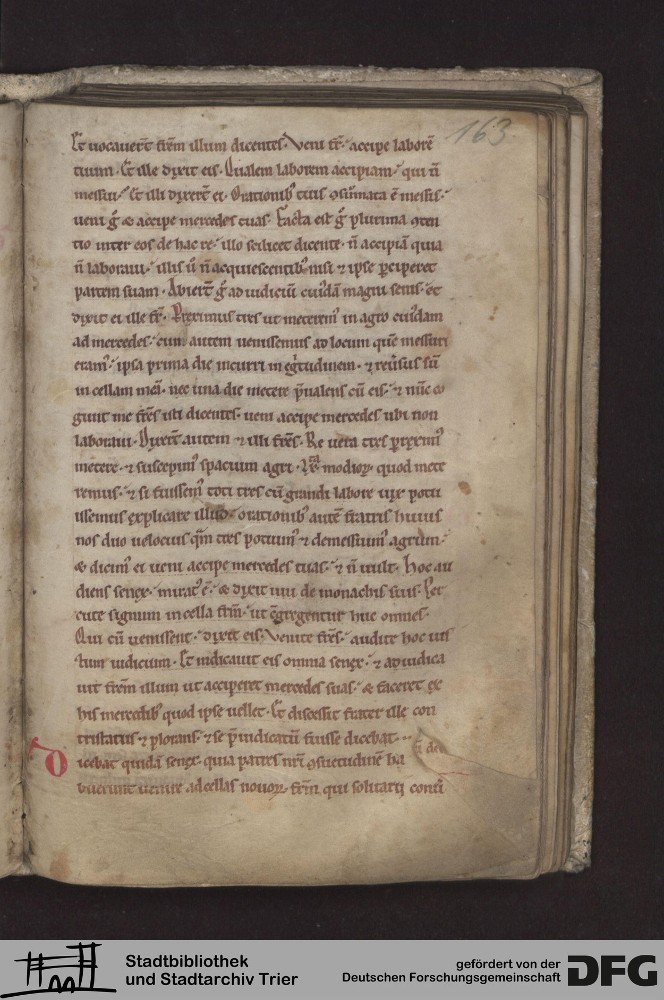 163
Et uocauer̄t frēm illum dicentes. Veni fr̄. accipe laborē
tuum. Et ille dixit eis. Qualem laborem accipiam. qui n̄
messui. Et illi dixer̄t ei. Orationib; tuis ꝯsūmata ē messis.
ueni ḡ & accipe mercedes tuas. Facta est ḡ plurima ꝯten
tio inter eos de hac re. illo scilicet dicente. n̄ accipiā quia
n̄ laboraui. illis ū n̄ acquiescentib; nisi ⁊ ipse ꝑciperet
partem suam. Abier̄t ḡ ad iudiciū cuiꝰdā magni senis. et
dixit ei ille fr̄. Reximus tres ut meteremꝰ in agro cuiꝰdam
ad mercedes. cum autem uenissemus ad locum quē messuri
eramꝰ. ipsa prima die incurri in egͥtudinem. ⁊ reūsus sū
in cellam meā. nec una die metere p̄ualens cū eis. ⁊ nūc co
gunt me frēs isti dicentes. ueni accipe mercedes ubi non
laboraui. Dixer̄t autem ⁊ illi frēs. Re uera tres ꝑreximꝰ
metere. ⁊ suscepimꝰ spacium agri. modioꝝ. quod mete
remus. ⁊ si fuissemꝰ toti tres cū grandi labore uix potu
issemus explicare illud. orationib; autē fratris huius
nos duo uelocius q̄m tres potuimꝰ ⁊ demessuimꝰ agrum.
& dicimꝰ ei ueni accipe mercedes tuas. ⁊ n̄ uult. Hoc au
diens senex. miratꝰ ē. & dixit uni de monachis suis. Per
cute signum in cella frm̄. ut ꝯgregentur huc omnes.
Qui cū uenissent. dixit eis. Venite frēs. audite hoc ius
tum iudicium. Et indicauit eis omnia senex. ⁊ adiudica
uit frēm illum ut acciperet mercedes suas. & faceret ex
his mercedib; quod ipse uellet. Et discessit frater ille con
tristatus ⁊ plorans. ⁊ se p̄iudicatū fuisse dicebat.
Dicebat quidā senex. quia patres nr̄i ꝯsuetudinē ha
buerunt uenire ad cellas nouoꝝ. frm̄ qui solitarij
Stadtbibliothek
und Stadtarchiv Trier
gefördert von der
Deutschen Forschungsgemeinschaft
DFG